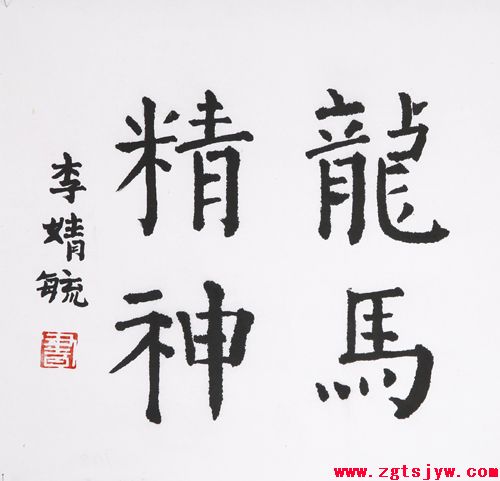 龍馬
精神
李婧毓
書
www.zgtsjyw.com